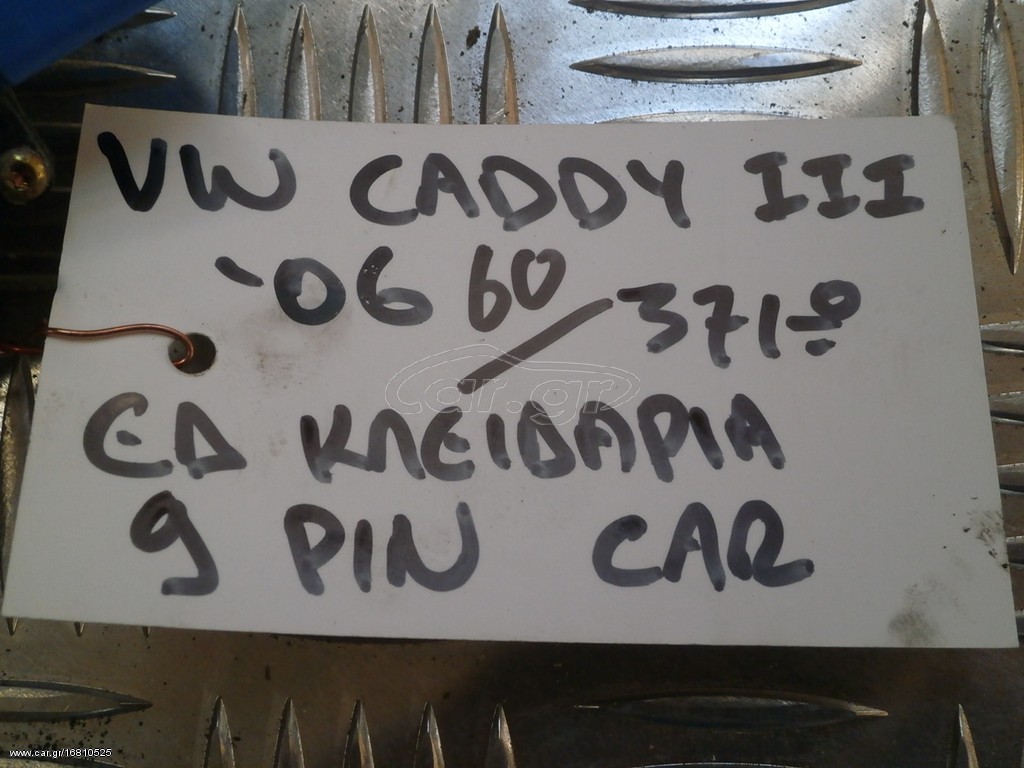 VW CADDY III
'06 60/371-0
ΕΔ ΚΛΕΙΔΑΡΙΑ
9 PIN CAR
car.gr
www.car.gr/16810525